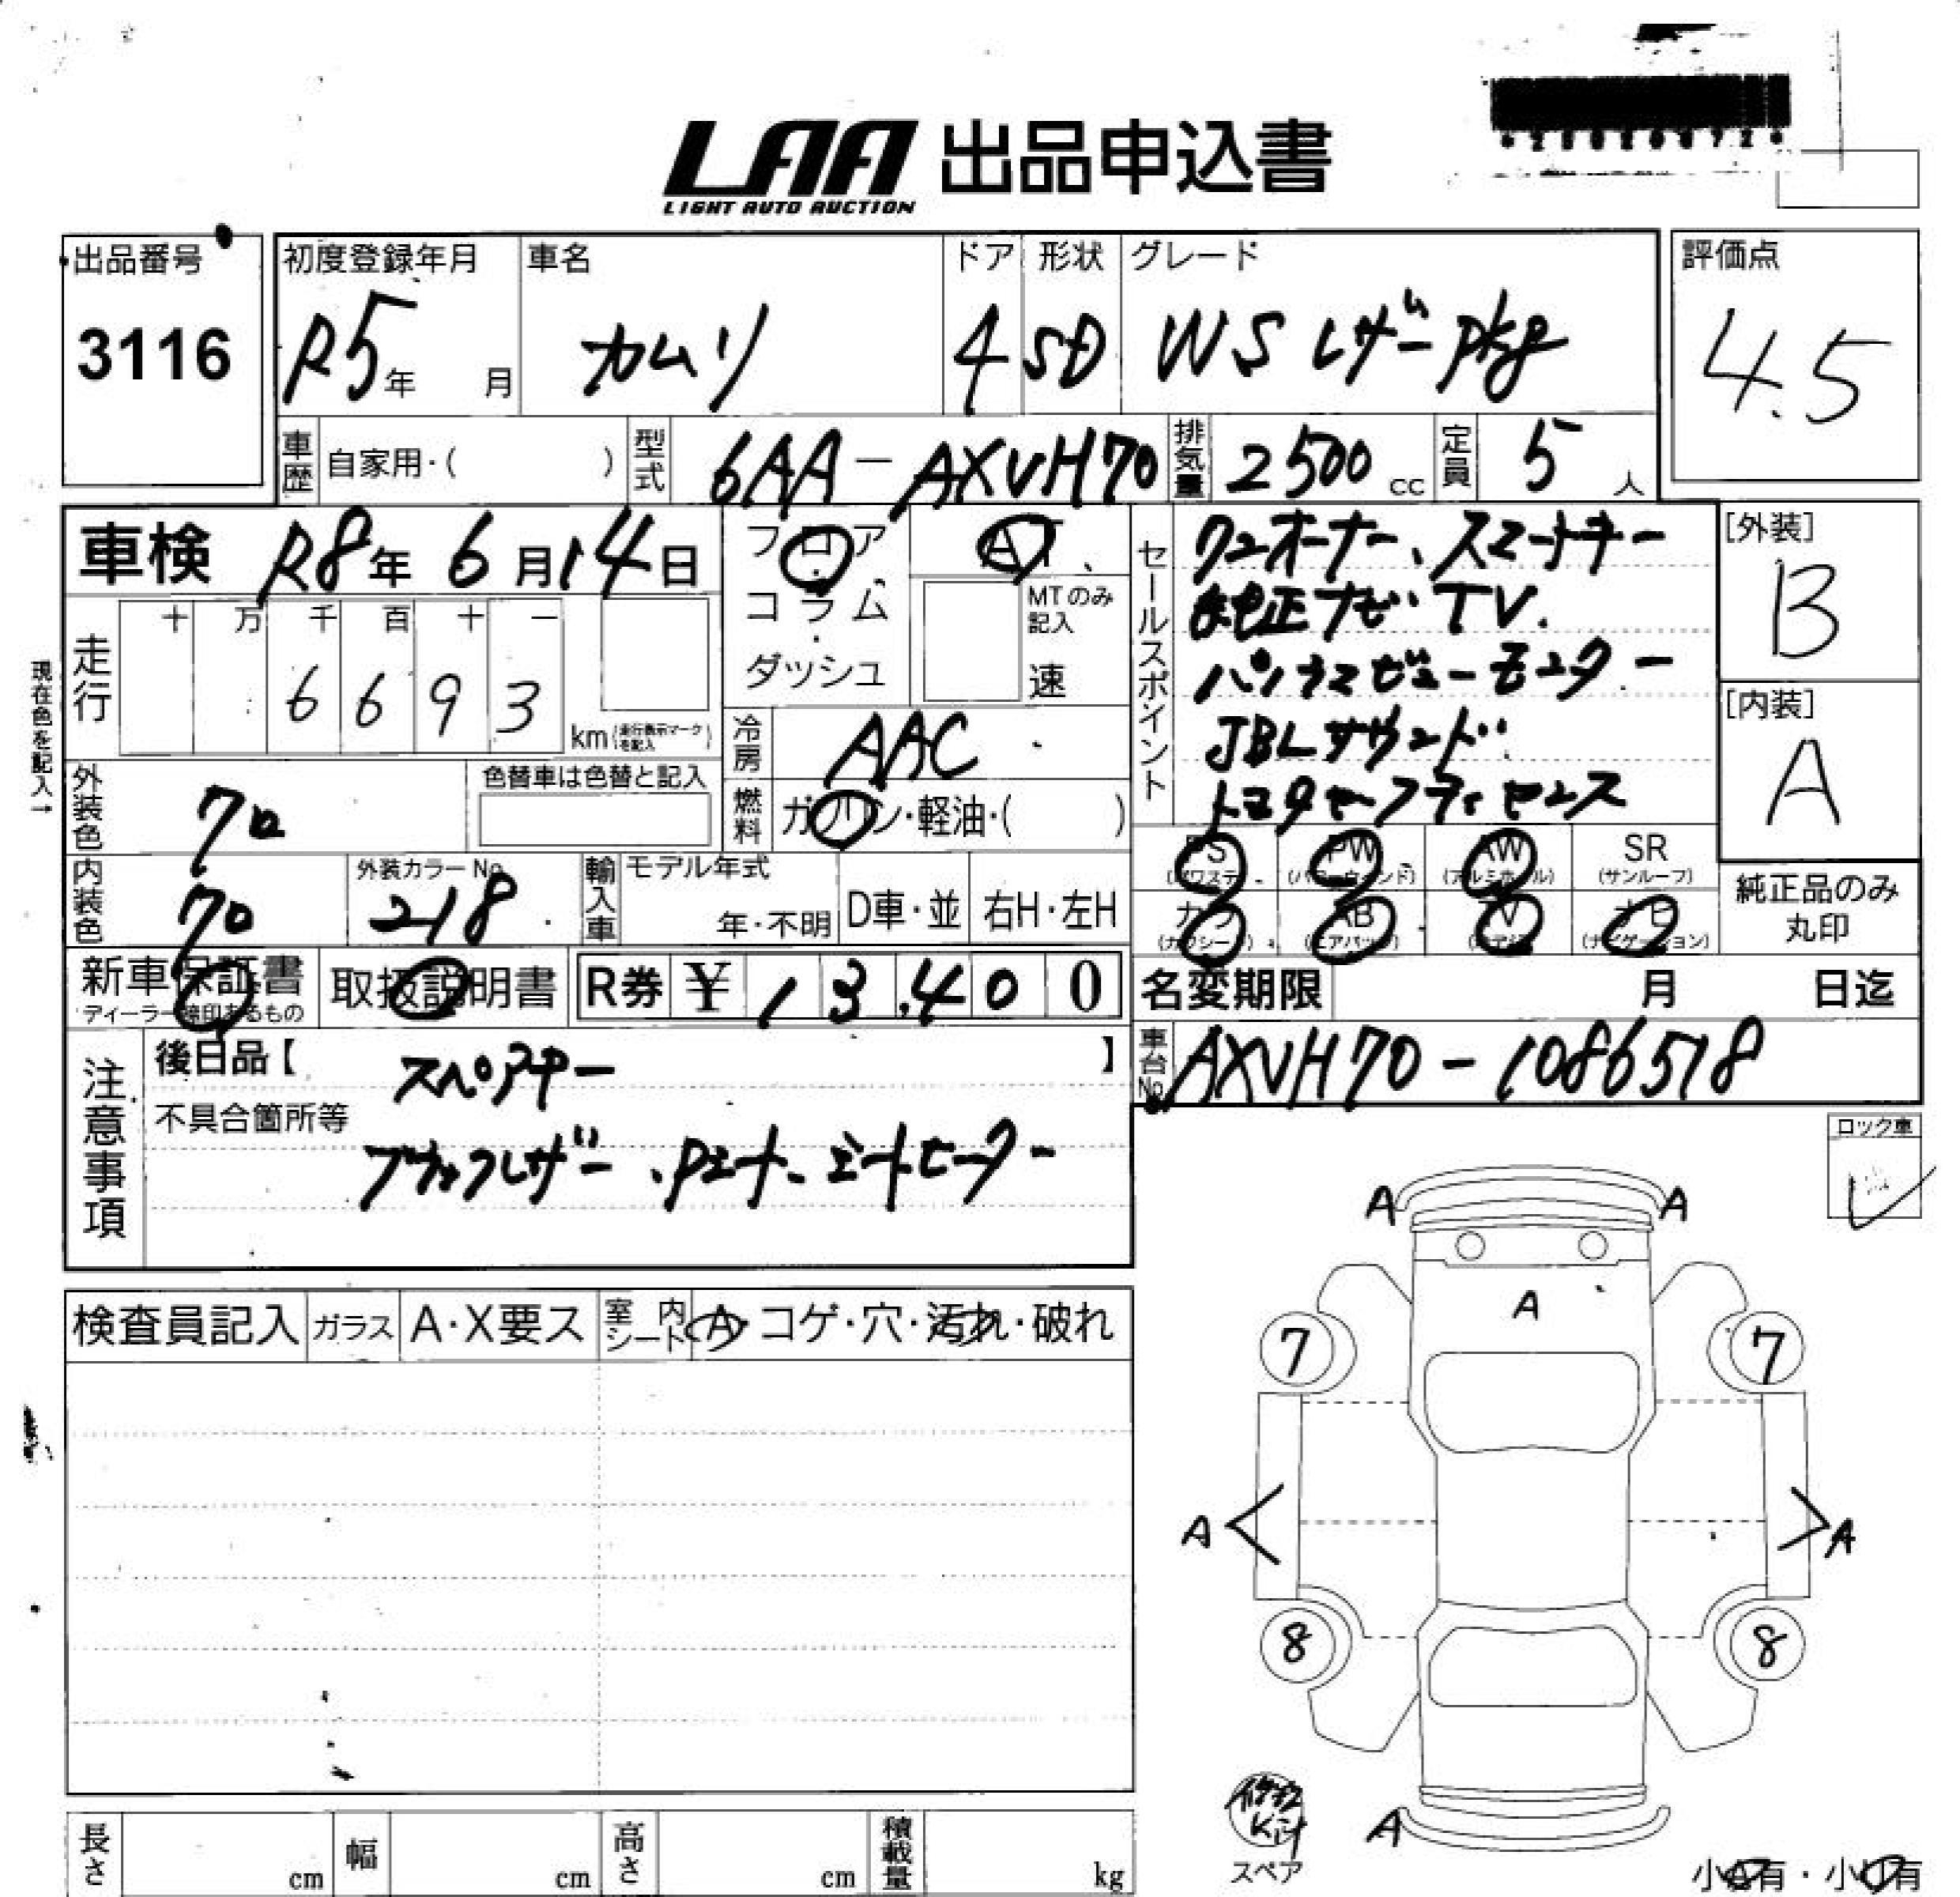 LAA 出品申込書
LIGHT AUTO AUCTION
出品番号
3116
初度登録年月
R5年 月
車名
カムリ
ドア
4
形状
SD
グレード
WS レザーPkg
評価点
4.5
車歴 自家用・( )
型式 6AA-AXVH70
排気量 2500 cc
定員 5 人
車検 R8年 6月14日
フロア
コラム
ダッシュ
AT
MTのみ記入
速
走行
十 万 千 百 十 一
6 6 9 3
km(走行表示マークを記入)
現在色を記入→
冷房 AAC
燃料 ガソリン・軽油・( )
外装色 クロ
色替車は色替と記入
内装色 クロ
外装カラーNo.
218
輸入車
モデル年式
年・不明
D車・並
右H・左H
セールスポイント
ワンオーナー、スマートキー
純正ナビ・TV.
パノラマビューモニター
JBLサウンド
トヨタセーフティセンス
PS
(パワステ)
PW
(パワーウィンド)
AW
(アルミホイル)
SR
(サンルーフ)
カワ
(カワシート)
AB
(エアバッグ)
TV
ナビ
(ナビゲーション)
[外装]
B
[内装]
A
純正品のみ
丸印
新車保証書
ディーラー捺印あるもの
取扱説明書
R券 ¥ 13,400
名変期限 月 日迄
車台No. AXVH70-1086518
注意事項
後日品【 スペアキー 】
不具合箇所等
ブラックレザー、Pシート、シートヒーター
ロック車
検査員記入
ガラス A・X要ス
室内シート A・コゲ・穴・汚れ・破れ
A A
A
7 7
A A
8 8
A
修理Kit
スペア
小A有・小U有
長さ cm
幅 cm
高さ cm
積載量 kg